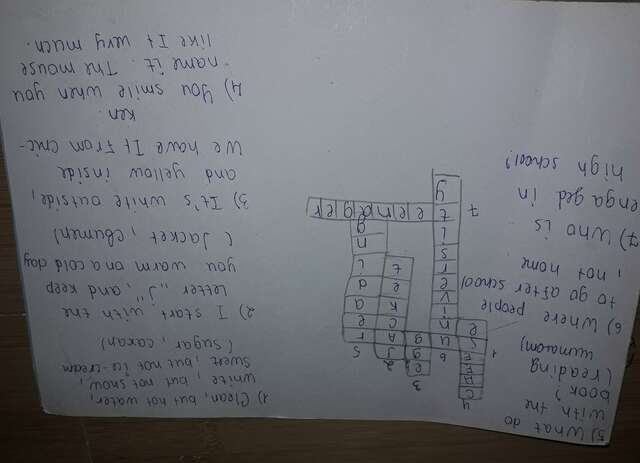 1) Clean, but not water,
white, but not snow,
sweet, but not ice-cream
(sugar, сахар)
2) I start with the
letter „j", and keep
you warm on a cold day
(Jacket,
3) It's white outside,
and yellow inside
We have It From chic-
ken.
4) You smile when you
name it. The mouse
like It very much.
4
3
C
6
2
5
1
s u g A r
e n g c e
i k a
v e d
e t i
r n
s g
i
7 t e e n a g e r
y
5) What do
with the
book?
(reading
читать)
6) Where people
to go after school
, not home
7) Who is
engaged in
high school?